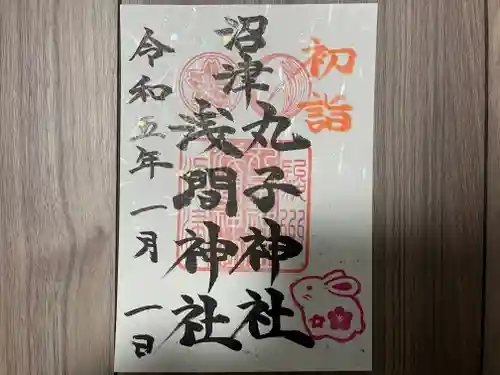 初詣
沼津
丸子神社
浅間神社
令和五年一月一日